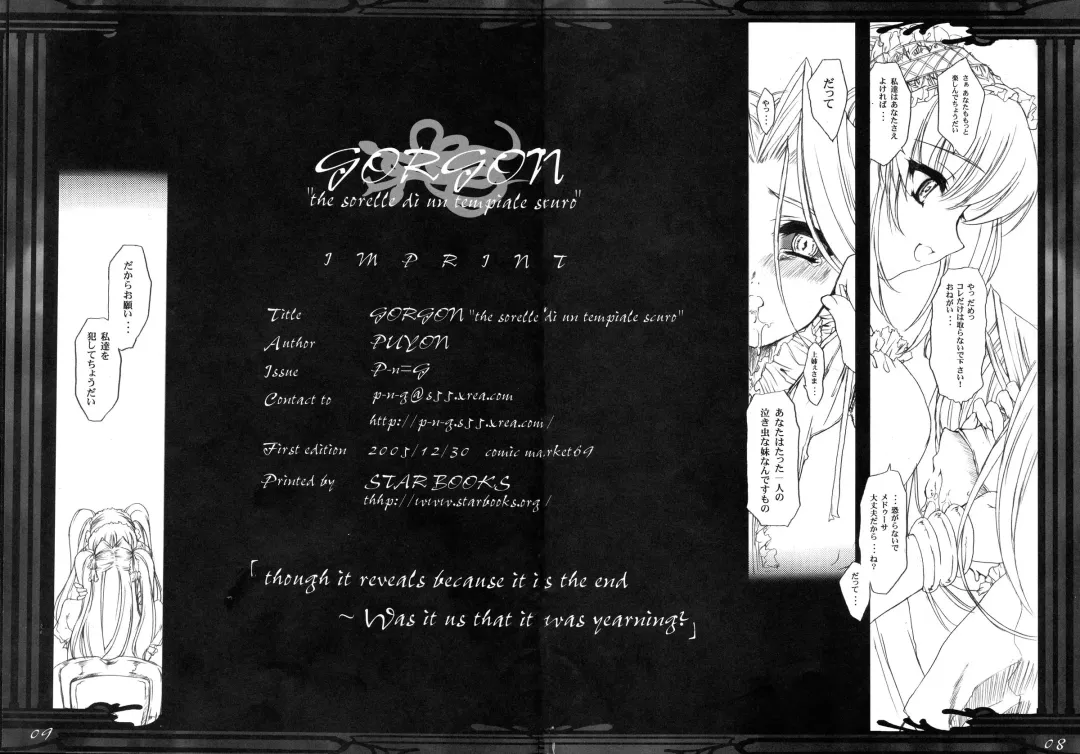 さぁ あなたももっと
楽しんでちょうだい
私達はあなたさえ
よければ・・・
やっ だめっ
コレだけは取らないで下さい！
おねがい・・・
・・・恐がらないで
メドゥーサ
大丈夫だから・・・ね？
だって・・・
だって
やっ・・・
上姉ぇさま・・・
あなたはたった一人の
泣き虫な妹なんですもの
GORGON
"the sorelle di un tempiale scuro"
IMPRINT
Title GORGON "the sorelle di un tempiale scuro"
Author PUYON
Issue P-n=G
Contact to p-n-g@s55.xrea.com
http://p-n-g.s55.xrea.com/
First edition 2005/12/30 comic market69
Printed by STARBOOKS
thhp://www.starbooks.org/
「though it reveals because it is the end
~ Was it us that it was yearning?」
だからお願い・・・
私達を
犯してちょうだい
09
08